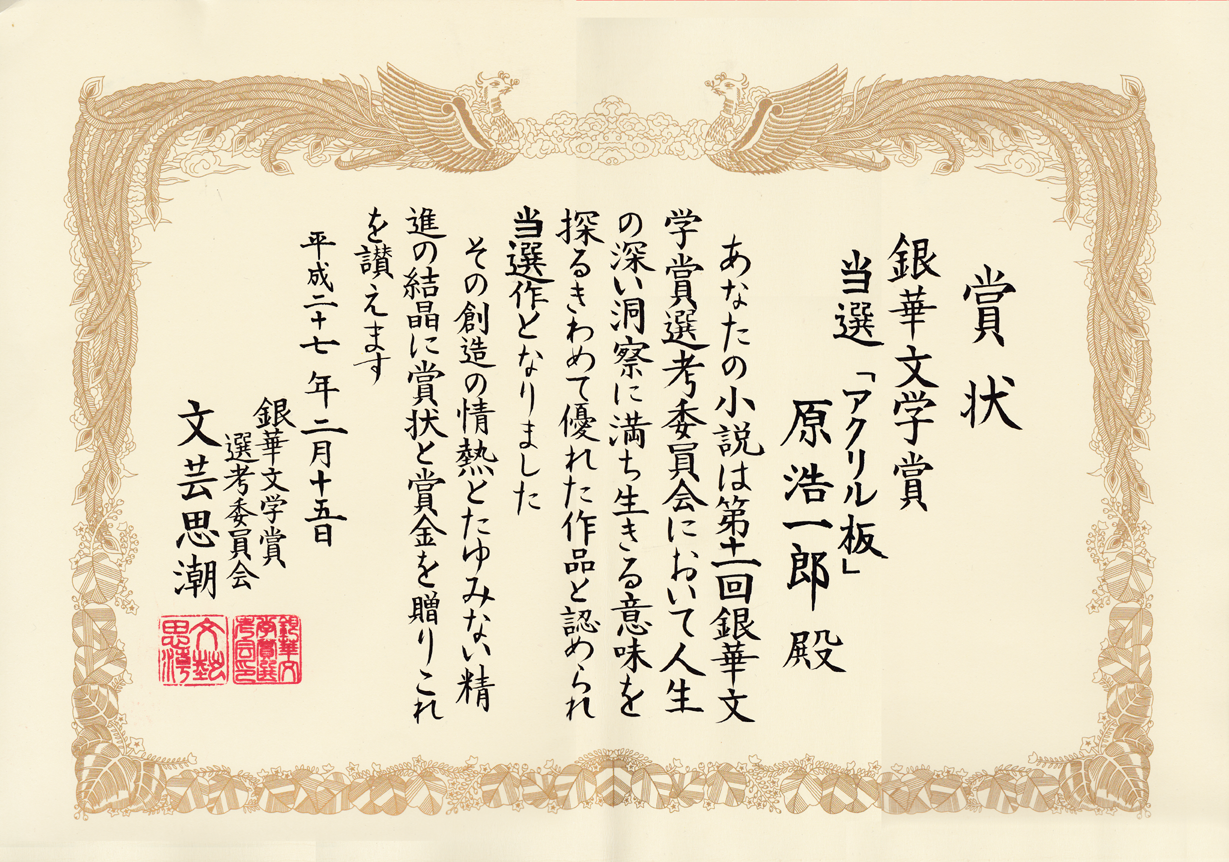 賞状
銀華文学賞
当選「アクリル板」
原浩一郎 殿
あなたの小説は第十一回銀華文
学賞選考委員会において人生
の深い洞察に満ち生きる意味を
探るきわめて優れた作品と認められ
当選作となりました
その創造の情熱とたゆみない精
進の結晶に賞状と賞金を贈りこれ
を讃えます
平成二十七年二月十五日
銀華文学賞
選考委員会
文芸思潮
銀華文
学賞選
考会印
文藝
思潮